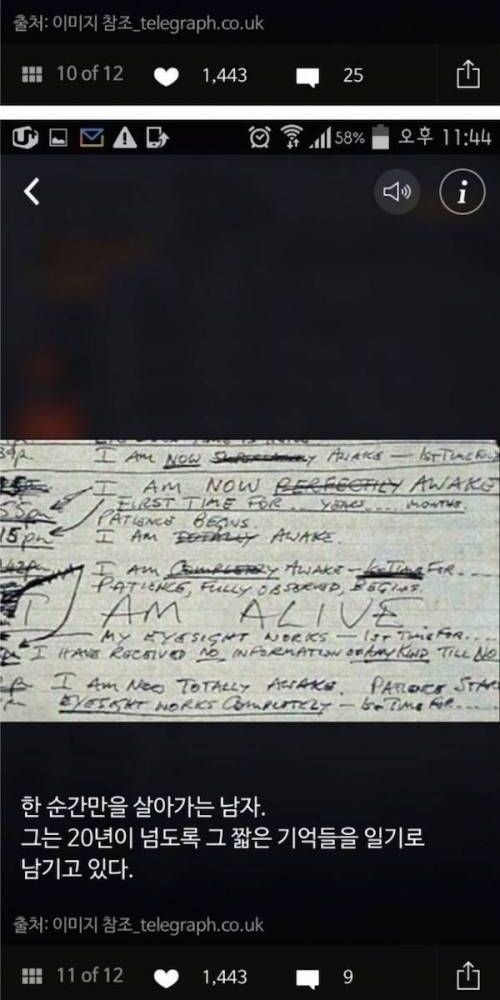 출처: 이미지 참조_telegraph.co.uk
10 of 12 1,443 25
58% 오후 11:44
I AM NOW AWAKE — 1ST TIME FOR
I AM NOW PERFECTLY AWAKE
FIRST TIME FOR .... YEARS .... MONTHS
PATIENCE BEGINS.
15pm I AM TOTALLY AWAKE.
I AM COMPLETELY AWAKE — 1ST TIME FOR ....
PATIENCE, FULLY OBSERVED, BEGINS.
I AM ALIVE
MY EYESIGHT WORKS — 1ST TIME FOR....
I HAVE RECEIVED NO INFORMATION OF ANY KIND TILL NO
I AM NOW TOTALLY AWAKE. PATIENCE STAR
EYESIGHT WORKS COMPLETELY — 1ST TIME FOR....
한 순간만을 살아가는 남자.
그는 20년이 넘도록 그 짧은 기억들을 일기로
남기고 있다.
출처: 이미지 참조_telegraph.co.uk
11 of 12 1,443 9